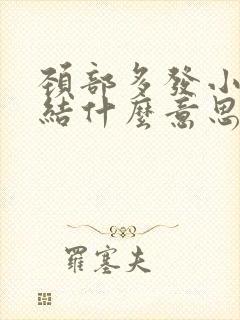 頚部多發小
結什麼意思
羅塞夫